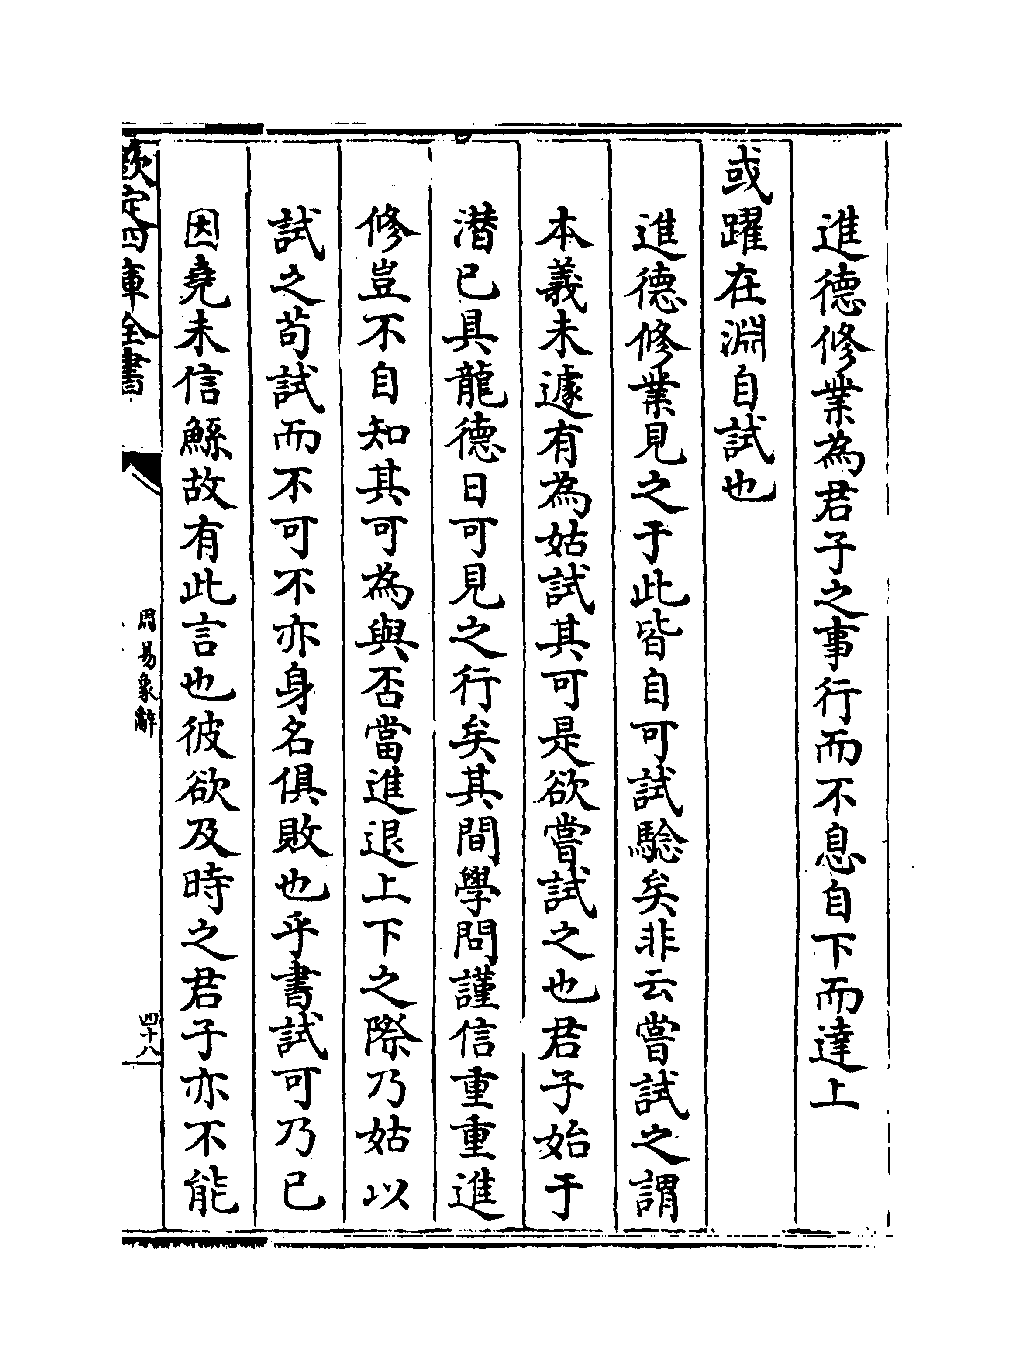 進德修業為君子之事行而不息自下而達上
或躍在淵自試也
進德修業見之于此皆自可試驗矣非云嘗試之謂
本義未遽有為姑試其可是欲嘗試之也君子始于
潛已具龍德日可見之行矣其間學問謹信重重進
修豈不自知其可為與否當進退上下之際乃姑以
試之苟試而不可不亦身名俱敗也乎書試可乃已
因堯未信鯀故有此言也彼欲及時之君子亦不能
欽定四庫全書
周易象辭
四十八